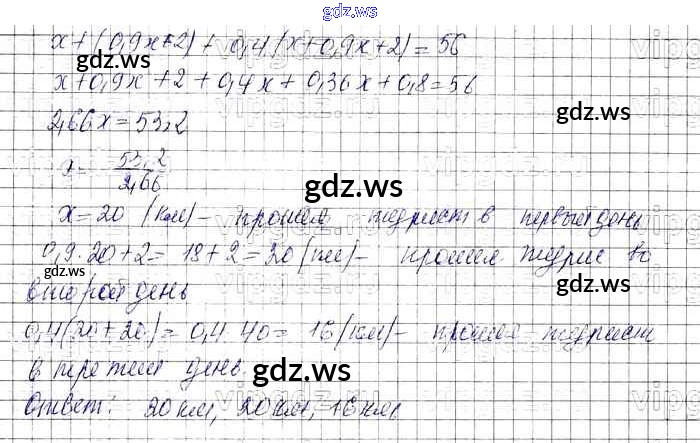 gdz.ws
x+(0,9x+2)+0,4(x+0,9x+2)=56
x+0,9x+2+0,4x+0,36x+0,8=56
gdz.ws
2,66x=53,2
x=53,2/2,66
gdz.ws
x=20 (км)- прошел турист в первый день
0,9·20+2=18+2=20(км)- прошел турис во
gdz.ws
gdz.ws
второй день
0,4(20+20)=0,4·40=16(км)- прошел турист
в третий день.
gdz.ws
Ответ: 20км, 20км, 16км.
gdz.ws